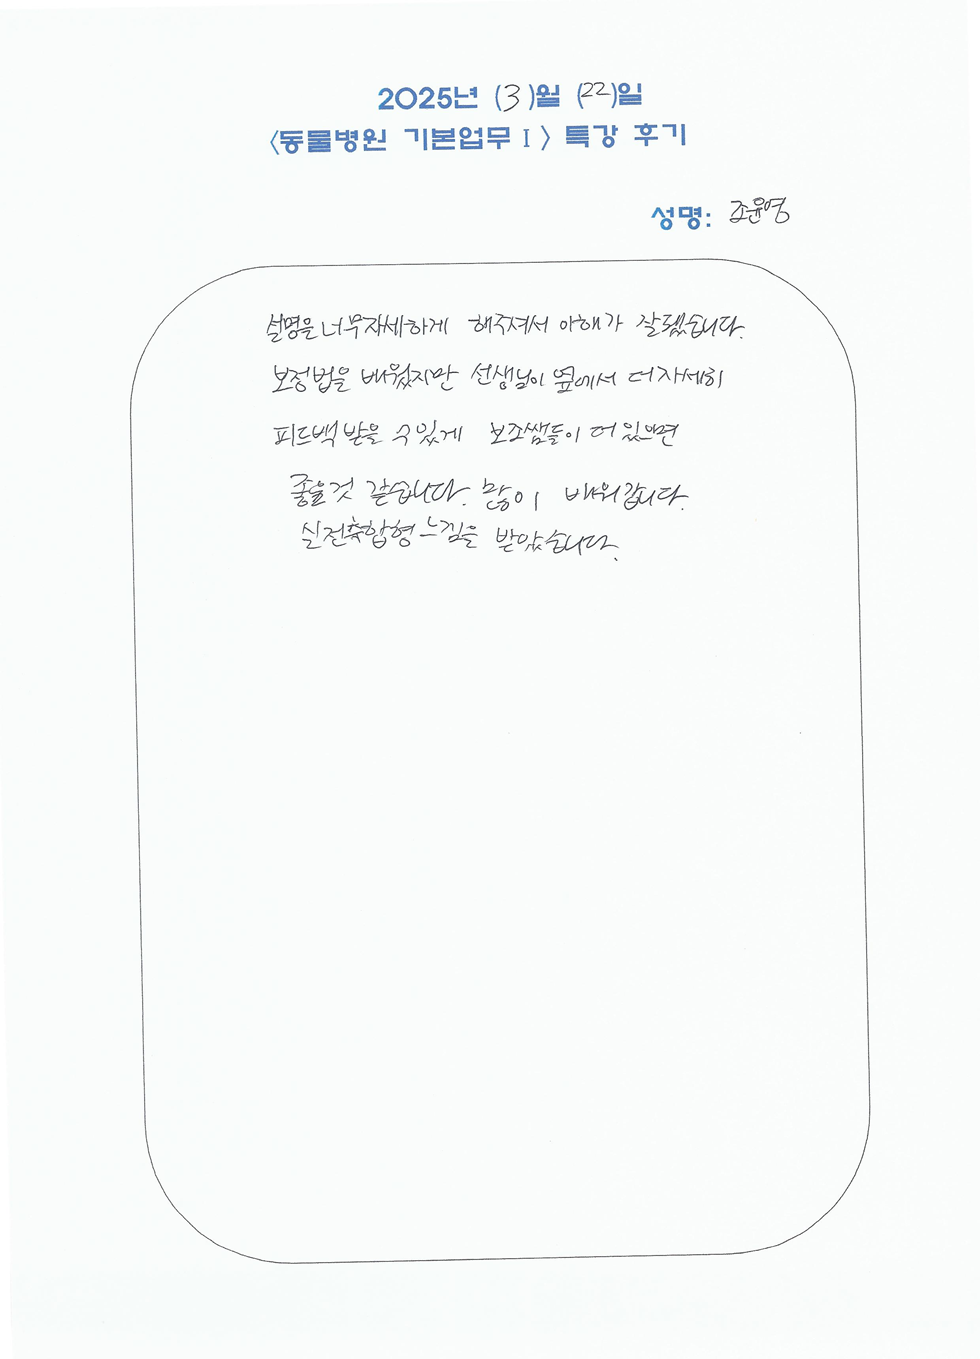 2025년 (3)월 (22)일
<동물병원 기본업무 I> 특강 후기
성명: 조윤영
설명을 너무자세하게 해주셔서 이해가 잘됐습니다.
보정법을 배웠지만 선생님이 옆에서 더자세히
피드백 받을 수있게 보조쌤들이 더 있으면
좋을것 같습니다. 많이 배워갑니다.
실전축합형 느낌을 받았습니다.